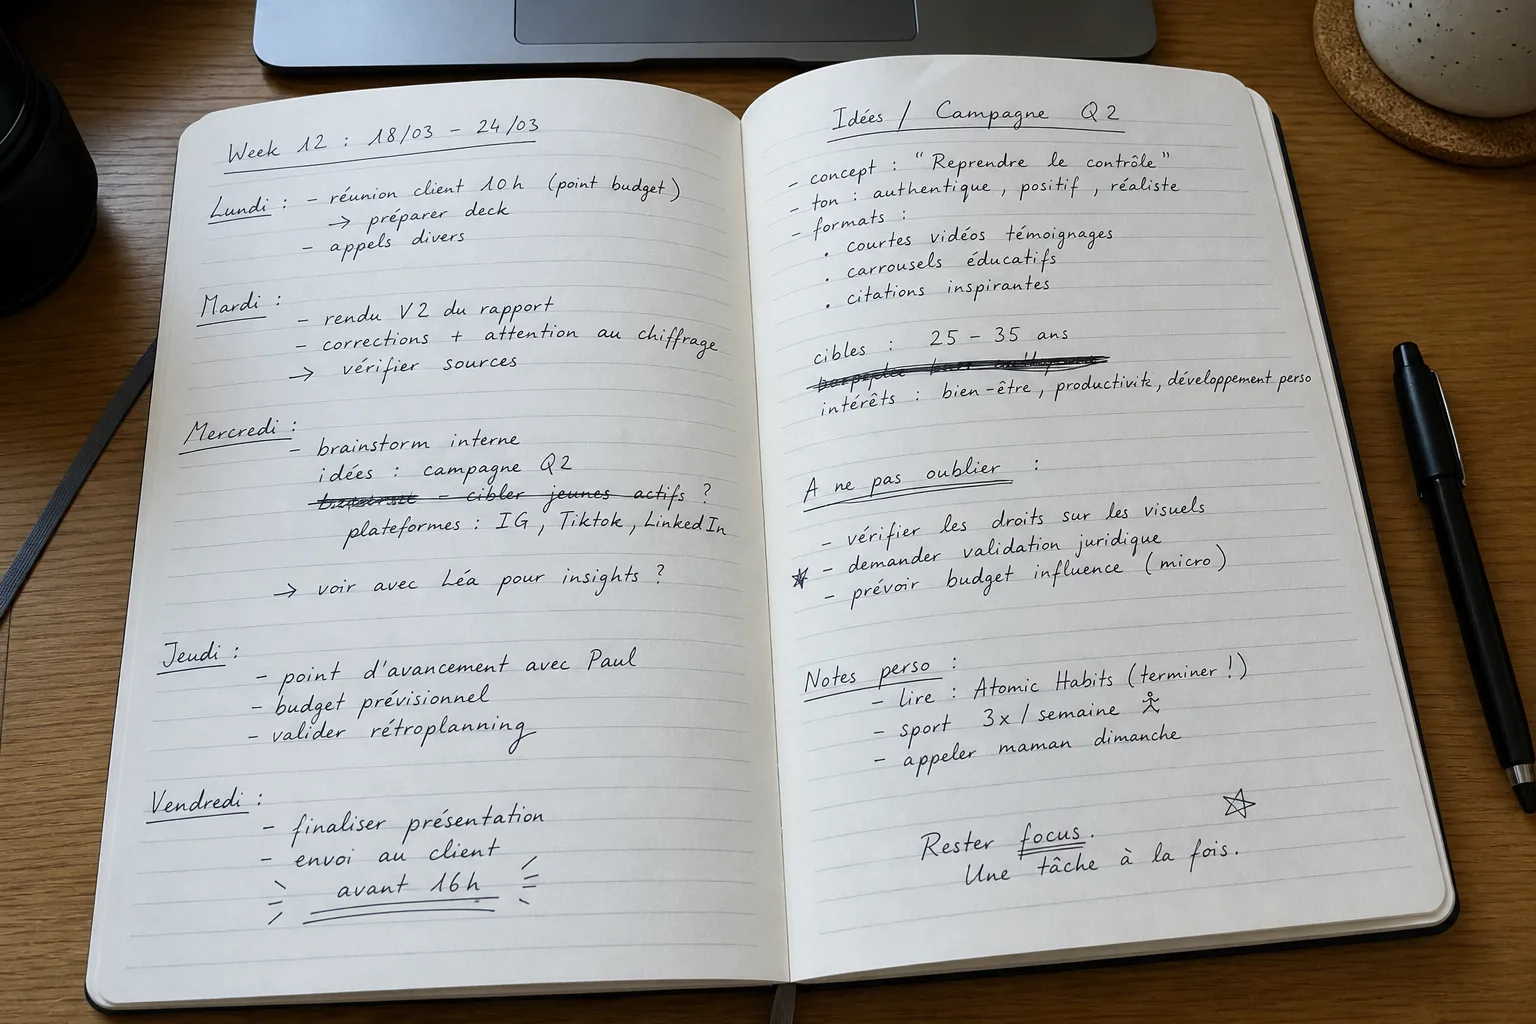 Week 12 : 18/03 - 24/03
Lundi : - réunion client 10h (point budget)
→ préparer deck
- appels divers
Mardi :
- rendu V2 du rapport
- corrections + attention au chiffrage
→ vérifier sources
Mercredi :
- brainstorm interne
idées : campagne Q2
- cibler jeunes actifs ?
plateformes : IG, Tiktok, LinkedIn
→ voir avec Léa pour insights ?
Jeudi :
- point d'avancement avec Paul
- budget prévisionnel
- valider rétroplanning
Vendredi :
- finaliser présentation
- envoi au client
avant 16h
Idées / Campagne Q2
- concept : "Reprendre le contrôle"
- ton : authentique, positif, réaliste
- formats :
. courtes vidéos témoignages
. carrousels éducatifs
. citations inspirantes
cibles : 25 - 35 ans
intérêts : bien-être, productivité, développement perso
A ne pas oublier :
- vérifier les droits sur les visuels
- demander validation juridique
- prévoir budget influence (micro)
Notes perso :
- lire : Atomic Habits (terminer !)
- sport 3x / semaine
- appeler maman dimanche
Rester focus.
Une tâche à la fois.